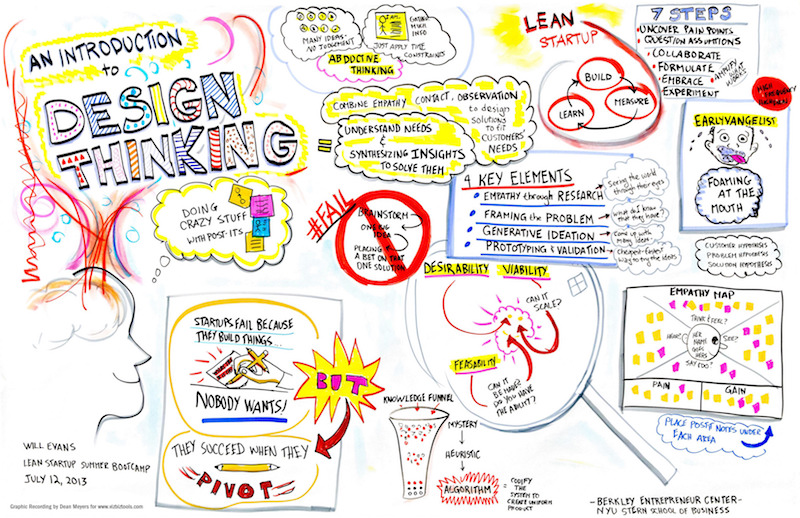 AN INTRODUCTION
to
DESIGN
THINKING
MANY IDEAS-
NO JUDGEMENT
GATHER
INFO
JUST APPLY TIME
CONSTRAINTS
ABDUCTIVE
THINKING
COMBINE EMPATHY, CONTACT, OBSERVATION
to design
solutions
to fit
CUSTOMERS'
NEEDS
=
UNDERSTAND NEEDS
&
SYNTHESIZING INSIGHTS
TO SOLVE THEM
LEAN
STARTUP
BUILD
MEASURE
LEARN
7 STEPS
UNCOVER PAIN POINTS
QUESTION ASSUMPTIONS
COLLABORATE
FORMULATE
EMBRACE
EXPERIMENT
AMPLIFY WHAT
WORKS
HIGH FREQUENCY
EARLYVANGELIST
FOAMING
AT THE
MOUTH
CUSTOMER HYPOTHESIS
PROBLEM HYPOTHESIS
SOLUTION HYPOTHESIS
DOING
CRAZY STUFF
WITH POST-ITS
#FAIL
BRAINSTORM
ONE BIG
IDEA
PLACING
A BET ON THAT
ONE SOLUTION
4 KEY ELEMENTS
EMPATHY through RESEARCH
Seeing the world
through their eyes
FRAMING the PROBLEM
What do I know
that they have?
GENERATIVE IDEATION
Come up with
many ideas
PROTOTYPING & VALIDATION
Cheapest-Fastest
way to try the ideas
DESIRABILITY
VIABILITY
CAN IT
SCALE?
FEASABILITY
CAN IT
BE MADE?
DO YOU HAVE
THE ABILITY?
EMPATHY MAP
THINK & FEEL?
HEAR?
HER
NAME
GOES
HERE
SEE?
SAY & DO?
PAIN
GAIN
PLACE POST-IT NOTES UNDER
EACH AREA
STARTUPS FAIL BECAUSE
THEY BUILD THINGS...
NOBODY WANTS!
BUT
THEY SUCCEED WHEN THEY
PIVOT
KNOWLEDGE FUNNEL
MYSTERY
HEURISTIC
ALGORITHM
=
CODIFY
THE
SYSTEM TO
CREATE UNIFORM
PRODUCT
WILL EVANS
LEAN STARTUP SUMMER BOOTCAMP
JULY 12, 2013
Graphic Recording by Dean Meyers for www.vizbiztools.com
-BERKLEY ENTREPRENEUR CENTER-
NYU STERN SCHOOL OF BUSINESS